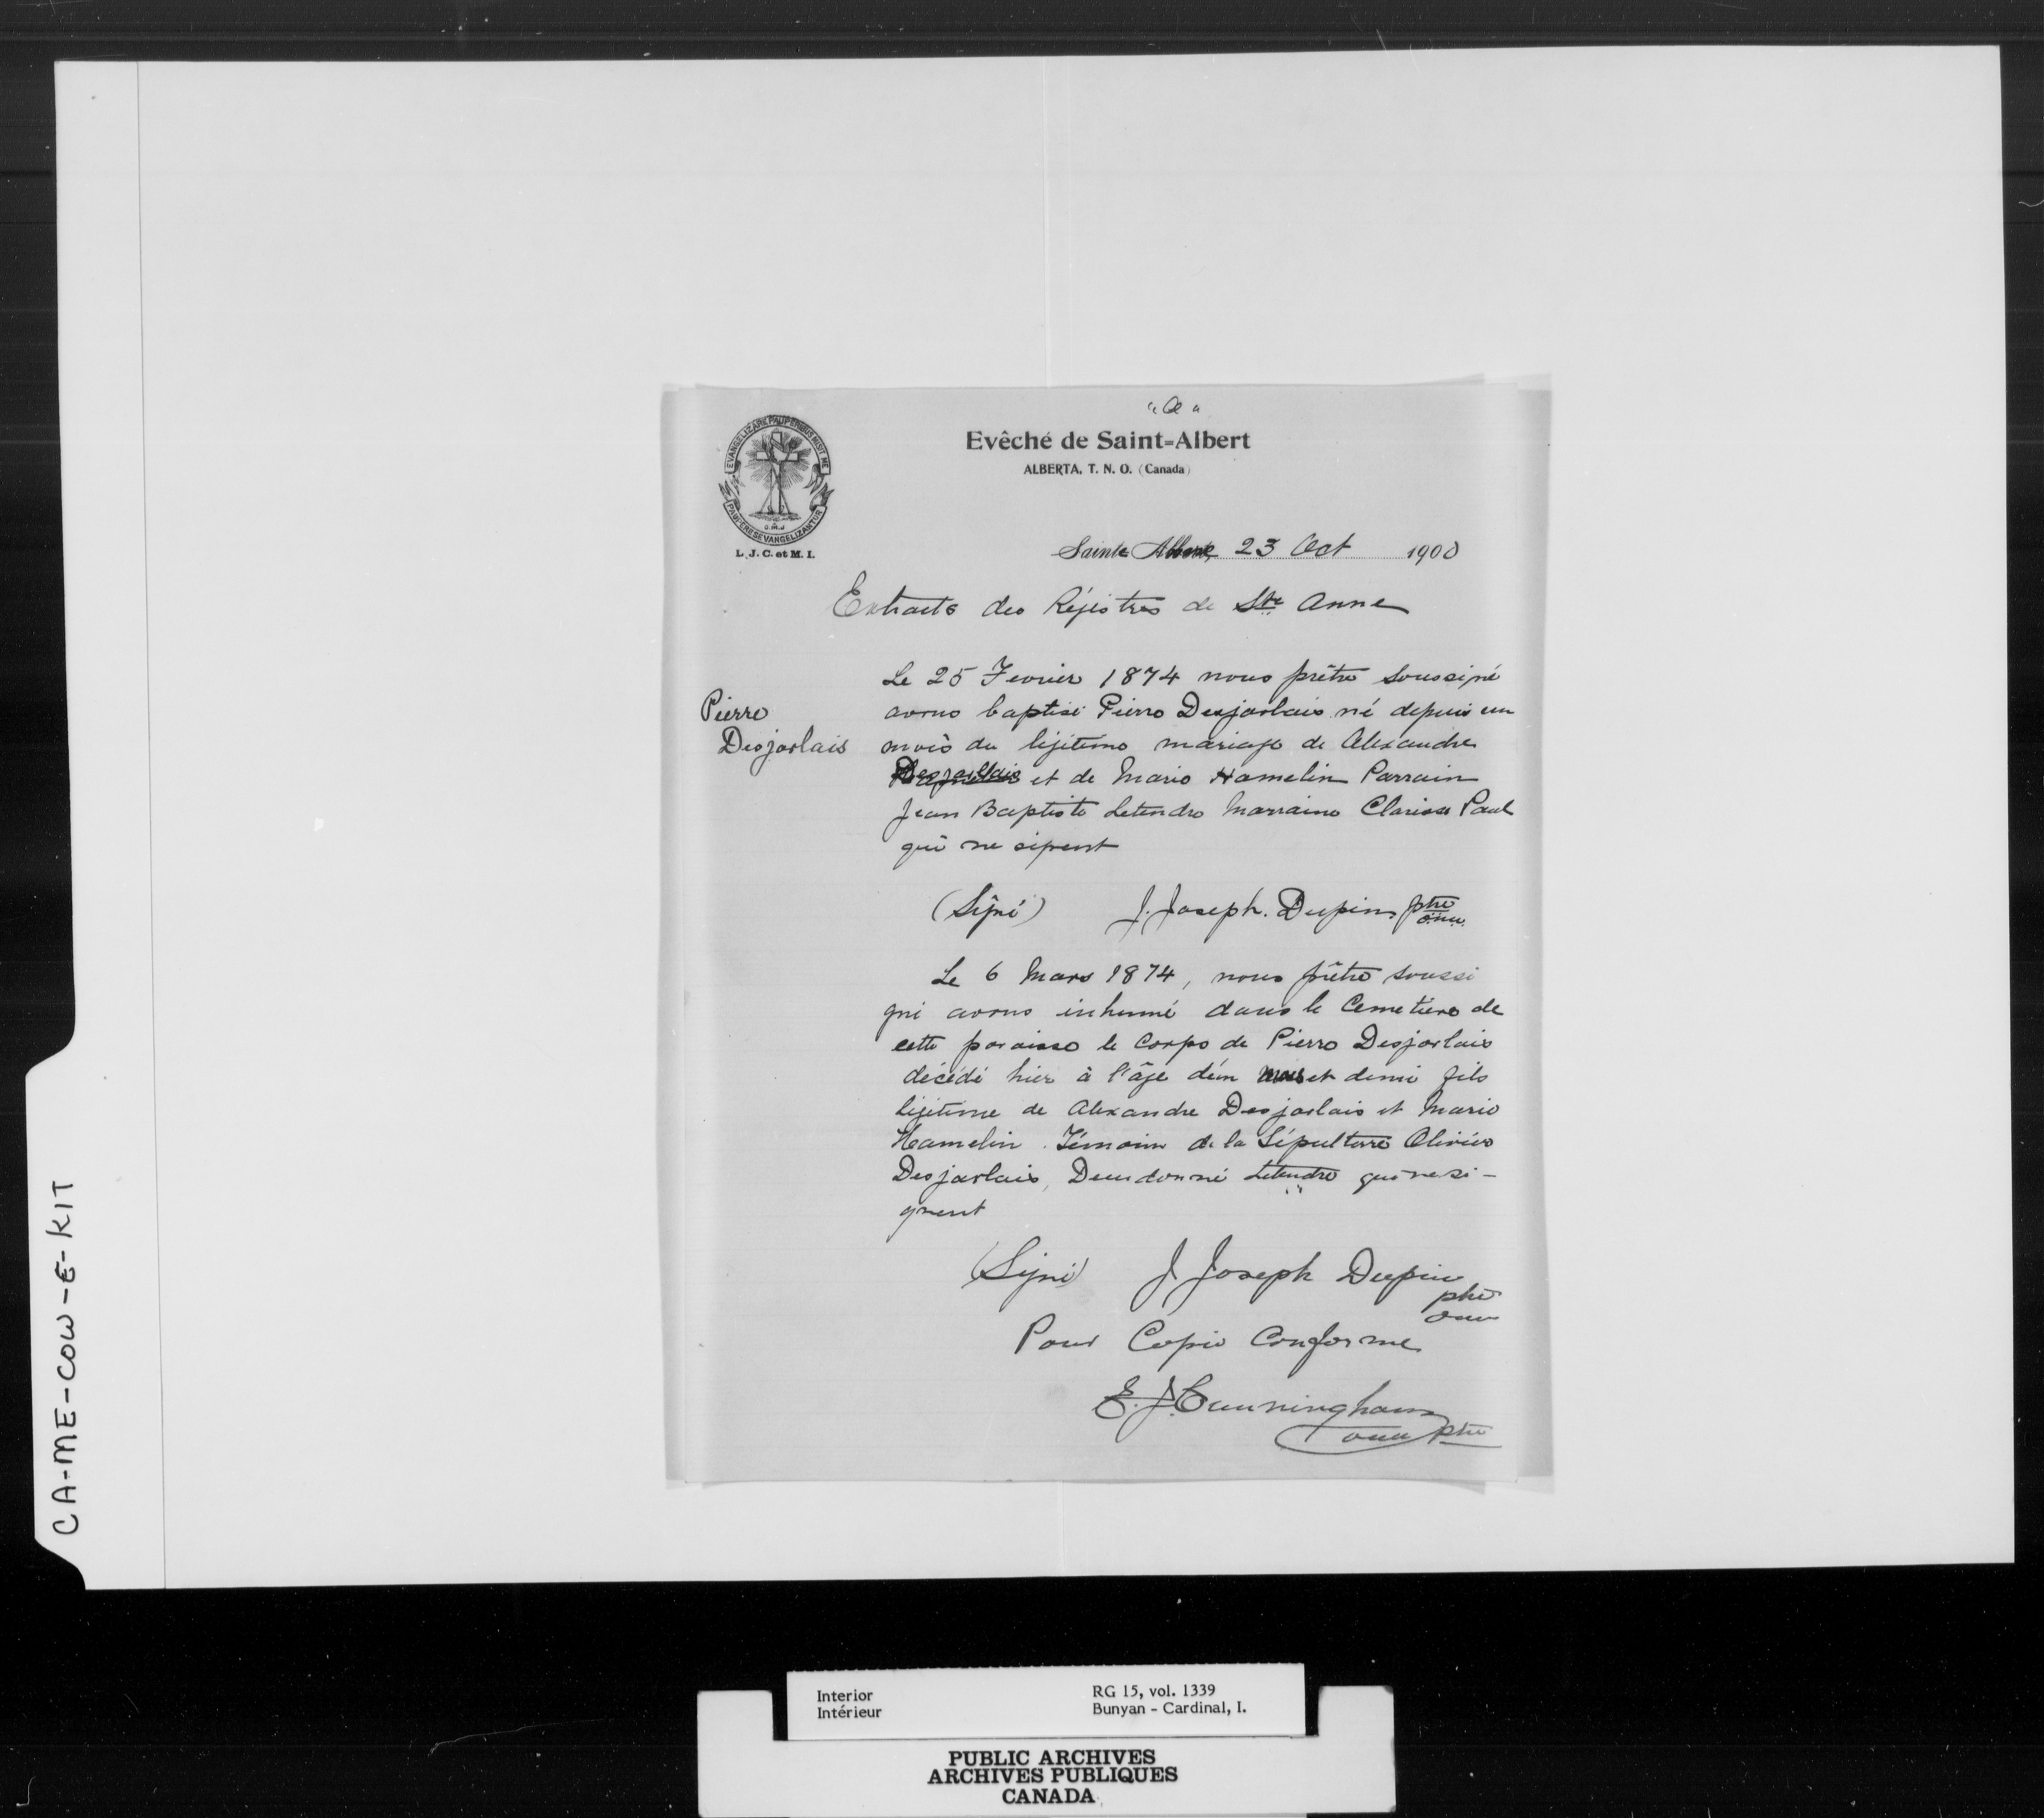 "a"
Evêché de Saint=Albert
ALBERTA, T. N. O. (Canada)
EVANGELIZARE PAUPERIBUS MISIT ME
O.M.I
PAUPERES EVANGELIZANTUR
L. J. C. et M. I.
Sainte 23 Oct 1900
Extraits des Régistres de Ste Anne
Pierre
Desjarlais
Le 25 Fevrier 1874 nous prêtre soussigné
avons baptisé Pierre Desjarlais né depuis un
mois du légitime mariage de Alexandre
Desjarlais et de Marie Hamelin Parrain
Jean Baptiste Letendre Marraine Clarisa Paul
qui ne signent
(Signé) J. Joseph. Dupin ptre
o.m.i.
Le 6 Mars 1874, nous prêtre soussi
gné avons inhumé dans le Cemetiere de
cette paroisse le Corps de Pierre Desjarlais
décédé hier à l'âge d'un mois et demi fils
légitime de Alexandre Desjarlais et Marie
Hamelin. Témoins de la Sépulture Olivier
Desjarlais, Deudonné Letendre qui ne si-
gnent
(Signé) J Joseph Dupin
ptre
omi
Pour Copie Conforme
E. J. Cunningham
omi ptre
CA-ME-COW-E-KIT
Interior RG 15, vol. 1339
Intérieur Bunyan - Cardinal, I.
PUBLIC ARCHIVES
ARCHIVES PUBLIQUES
CANADA